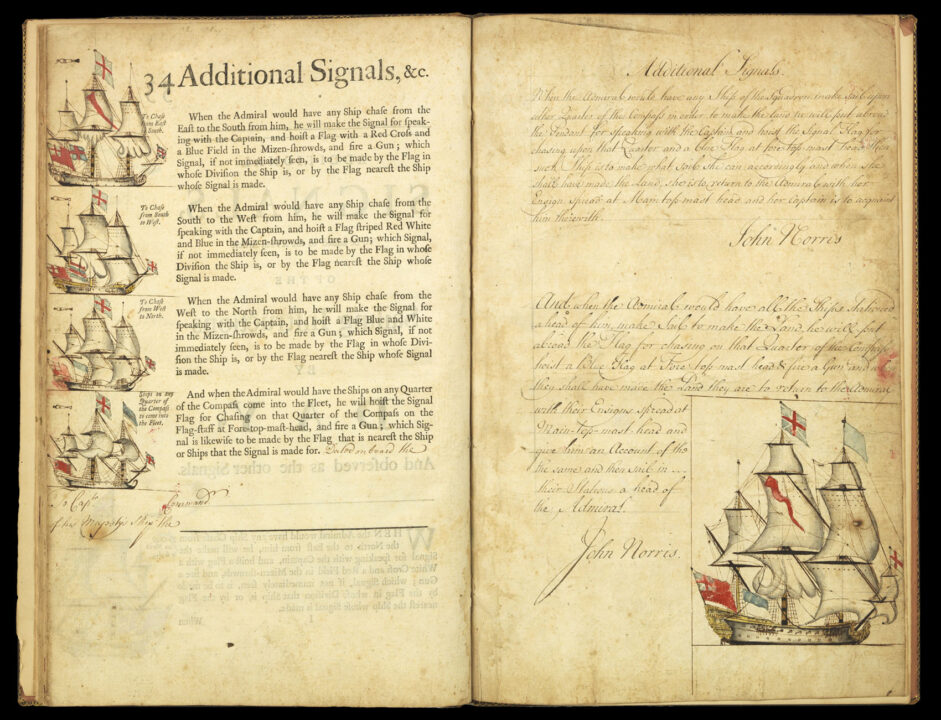 34 Additional Signals, &c.
To Chaſe
from Eaſt
to South.
When the Admiral would have any Ship chaſe from the
Eaſt to the South from him, he will make the Signal for ſpeak-
ing with the Captain, and hoiſt a Flag with a Red Croſs and
a Blue Field in the Mizen-ſhrowds, and fire a Gun; which
Signal, if not immediately ſeen, is to be made by the Flag in
whoſe Diviſion the Ship is, or by the Flag neareſt the Ship
whoſe Signal is made.
To Chaſe
from South
to Weſt.
When the Admiral would have any Ship chaſe from the
South to the Weſt from him, he will make the Signal for
ſpeaking with the Captain, and hoiſt a Flag ſtriped Red White
and Blue in the Mizen-ſhrowds, and fire a Gun; which Signal,
if not immediately ſeen, is to be made by the Flag in whoſe
Diviſion the Ship is, or by the Flag neareſt the Ship whoſe
Signal is made.
To Chaſe
from Weſt
to North.
When the Admiral would have any Ship chaſe from the
Weſt to the North from him, he will make the Signal for
ſpeaking with the Captain, and hoiſt a Flag Blue and White
in the Mizen-ſhrowds, and fire a Gun; which Signal, if not
immediately ſeen, is to be made by the Flag in whoſe Divi-
ſion the Ship is, or by the Flag neareſt the Ship whoſe Signal
is made.
Ships on any
Quarter of
the Compaſs
to come into
the Fleet.
And when the Admiral would have the Ships on any Quarter
of the Compaſs come into the Fleet, he will hoiſt the Signal
Flag for Chaſing on that Quarter of the Compaſs on the
Flag-ſtaff at Fore-top-maſt-head, and fire a Gun; which Sig-
nal is likewiſe to be made by the Flag that is neareſt the Ship
or Ships that the Signal is made for. Dated on board the
To Capt. Command
of his Majestys Ship the
Additional Signals.
When the Admiral would have any Ship of the Squadron make Sail upon
either Quarter of the Compass in order to make the Land, he will put abroad
the Pendant for speaking with the Captain and hoist the Signal Flag for
chasing upon that Quarter and a blue Flag at fore top mast head Then
such Ship is to make what Sail She can accordingly and when she
shall have made the Land, she is to return to the Admiral with her
Ensign Spread at Main top mast head and her Captain is to acquaint
him therewith.
John Norris
And when the Admiral would have all the Ships stationed
a head of him, make Sail to make the Land, he will put
abroad the Flag for chasing on that Quarter of the Compass
hoist a Blue Flag at Fore top mast head & fire a Gun and
they shall have made the Land they are to return to the Admiral
with their Ensigns spread at
Main-top-mast-head and
give him an Account of the
the same and then sail in
their Stations a head of
the Admiral.
John Norris.
When